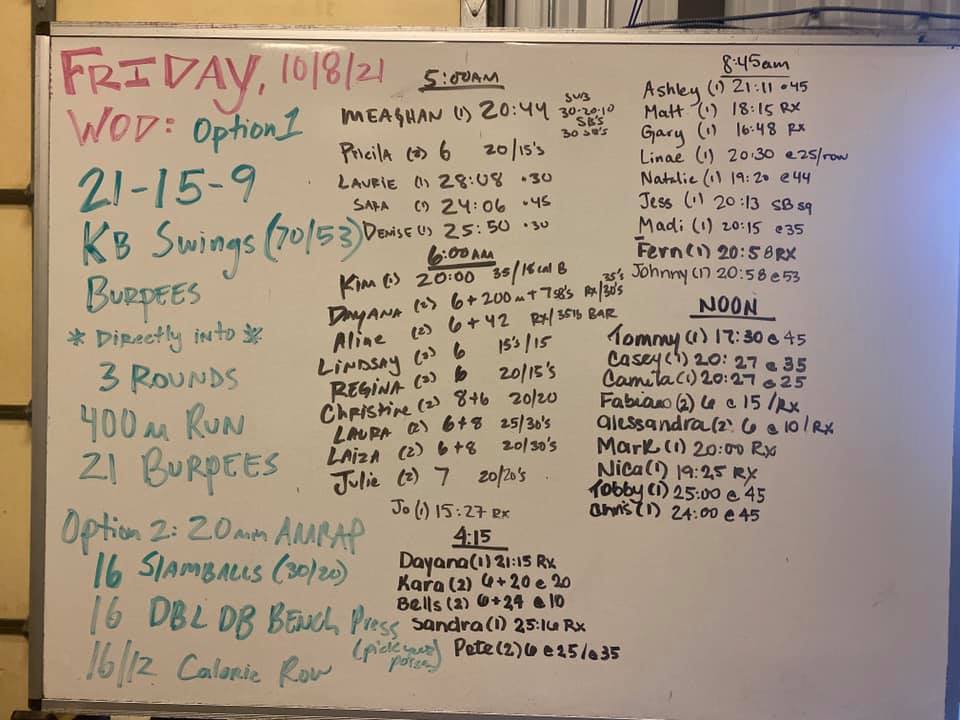 FRIDAY, 10/8/21
WOD: Option 1
21-15-9
KB Swings (70/53)
BURPEES
* Directly into *
3 ROUNDS
400m RUN
21 BURPEES
Option 2: 20 min AMRAP
16 SlamBALLS (30/20)
16 DBL DB BENCH Press
(pick your poison)
16/12 Calorie Row
5:00AM
MEAGHAN (1) 20:44 SUB 30-20-10 SB's 30 SB's
Pricila (2) 6 20/15's
LAURIE (1) 28:08 •30
SARA (1) 24:06 •45
DENISE (1) 25:50 •30
6:00AM
Kim (1) 20:00 35/18 cal B
DAYANA (2) 6+200m+7SB's RX/30's 35's
Aline (2) 6+42 RX/35lb BAR
LINDSAY (2) 6 15's/15
REGINA (2) 6 20/15's
Christine (2) 8+6 20/20
LAURA (2) 6+8 25/30's
LAIZA (2) 6+8 20/30's
Julie (2) 7 20/20's
Jo (1) 15:27 RX
4:15
Dayana (1) 21:15 Rx
Kara (2) 6+20 @ 20
Bells (2) 6+24 @ 10
Sandra (1) 25:16 Rx
Pete (2) 6 @ 25/@35
8:45am
Ashley (1) 21:11 •45
Matt (1) 18:15 RX
Gary (1) 16:48 RX
Linae (1) 20:30 @25/row
Natalie (1) 19:20 @44
Jess (1) 20:13 SB sq
Madi (1) 20:15 @35
Fern (1) 20:58 RX
Johnny (1) 20:58 @53
NOON
Tommy (1) 17:30 @ 45
Casey (1) 20:27 @ 35
Camila (1) 20:27 @ 25
Fabiano (2) 6 @ 15/RX
alessandra (2) 6 @ 10/RX
Mark (1) 20:00 RX
Nica (1) 19:25 RX
Tobby (1) 25:00 @ 45
Chris (1) 24:00 @ 45